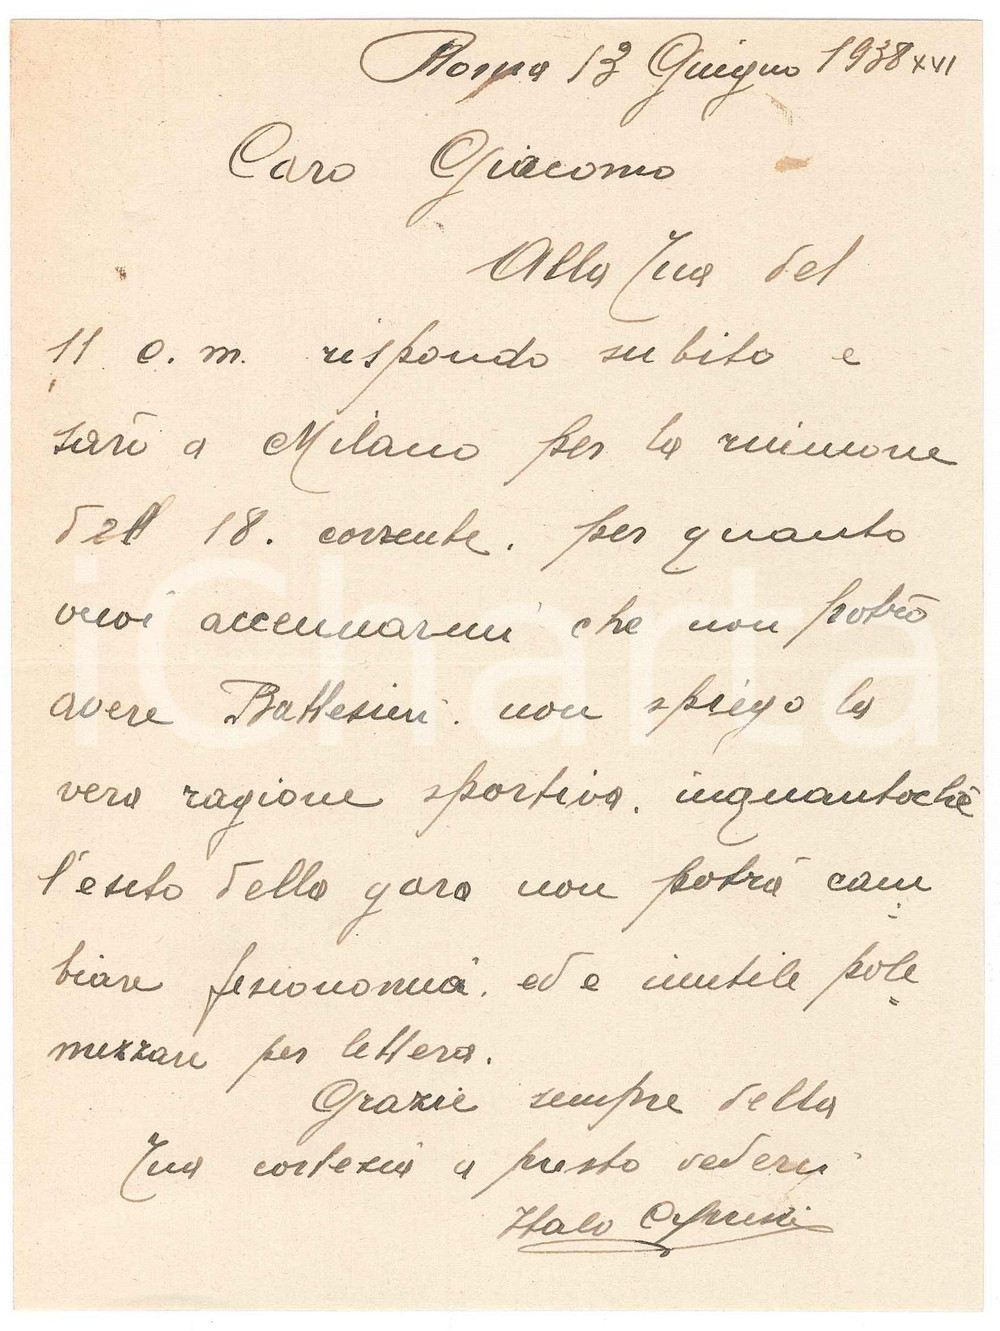 Roma 13 Giugno 1938 XVI
Caro Giacomo
Alla Tua del
11 c. m. rispondo subito e
sarò a Milano per la riunione
del 18. corrente. per quanto
vuoi accennarmi che non potrò
avere Battesini. non spiego la
vera ragione sportiva. inquantochè
l'esito della gara non potrà cam
biare fisionomia. ed e inutile pole
mizzare per lettera.
Grazie sempre della
Tua cortesia a presto vederci
Italo
iCharta